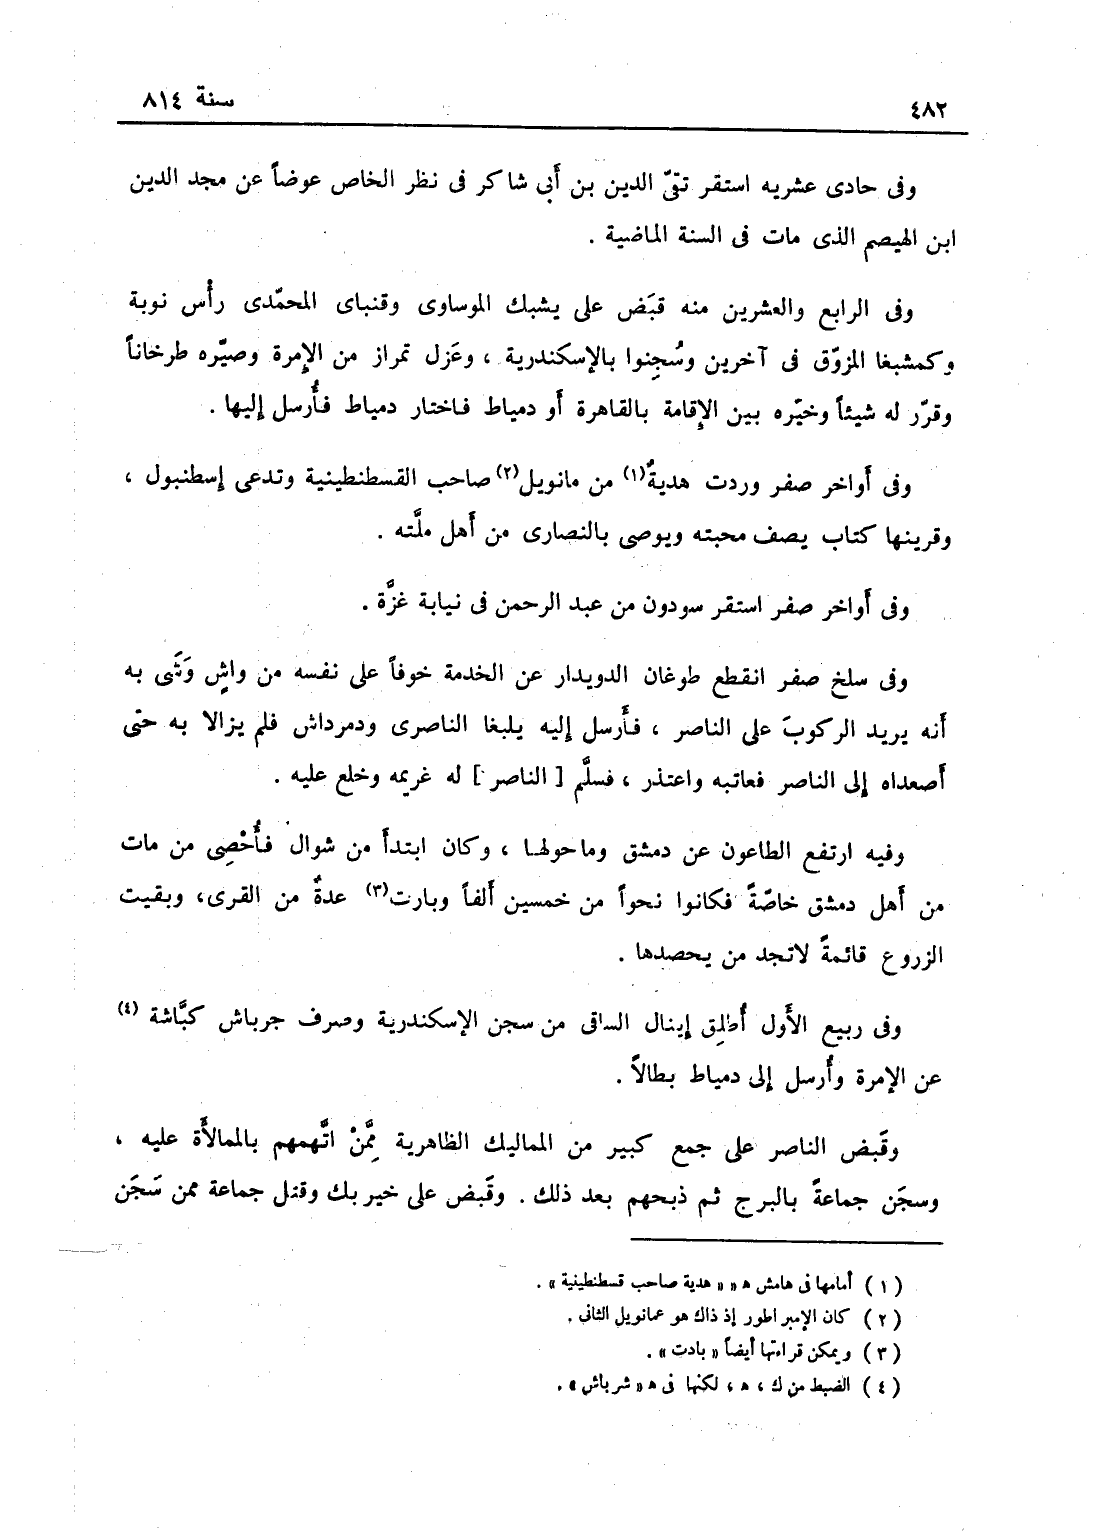 ٤٨٢
سنة ٨١٤
وفى حادى عشريه استقر تقىّ الدين بن أبى شاكر فى نظر الخاص عوضاً عن مجد الدين
ابن الهيصم الذى مات فى السنة الماضية .
وفى الرابع والعشرين منه قبَض على يشبك الموساوى وقنباى المحمّدى رأْس نوبة
وكمشبغا المزوّق فى آخرين وسُجِنوا بالإسكندرية ، وعَزل تمراز من الإِمرة وصيّره طرخاناً
وقرّر له شيئاً وخيّره بين الإِقامة بالقاهرة أَو دمياط فاختار دمياط فأُرسل إليها .
وفى أَواخر صفر وردت هديةٌ(١) من مانويل(٢) صاحب القسطنطينية وتدعى إسطنبول ،
وقرينها كتاب يصف محبته ويوصى بالنصارى من أَهل ملَّته .
وفى أَواخر صفر استقر سودون من عبد الرحمن فى نيابة غزَّة .
وفى سلخ صفر انقطع طوغان الدويدار عن الخدمة خوفاً على نفسه من واشٍ وَشَى به
أَنه يريد الركوبَ على الناصر ، فأَرسل إليه يلبغا الناصرى ودمرداش فلم يزالا به حتى
أَصعداه إلى الناصر فعاتبه واعتذر ، فسلَّم [ الناصر ] له غريمه وخلع عليه .
وفيه ارتفع الطاعون عن دمشق وما حولها ، وكان ابتدأَ من شوال فأُحْصِى من مات
من أَهل دمشق خاصّةً فكانوا نحواً من خمسين أَلفاً وبارت(٣) عدةٌ من القرى، وبقيت
الزروع قائمةً لا تجد من يحصدها .
وفى ربيع الأَول أُطلِق إينال الساقى من سجن الإسكندرية وصرف جرباش كبَّاشة (٤)
عن الإمرة وأُرسل إلى دمياط بطالاً .
وقَبض الناصر على جمع كبير من المماليك الظاهرية مِمَّنْ اتَّهمهم بالممالأَة عليه ،
وسجَن جماعةً بالبرج ثم ذبحهم بعد ذلك . وقَبض على خير بك وقتل جماعة ممن سَجَن
( ١ ) أمامها فى هامش ه « « هدية صاحب قسطنطينية » .
( ٢ ) كان الإمبراطور إذ ذاك هو عمانويل الثانى .
( ٣ ) ويمكن قراءتها أيضاً « بادت » .
( ٤ ) الضبط من ك ، ه ، لكنها فى ه « شرباش » .